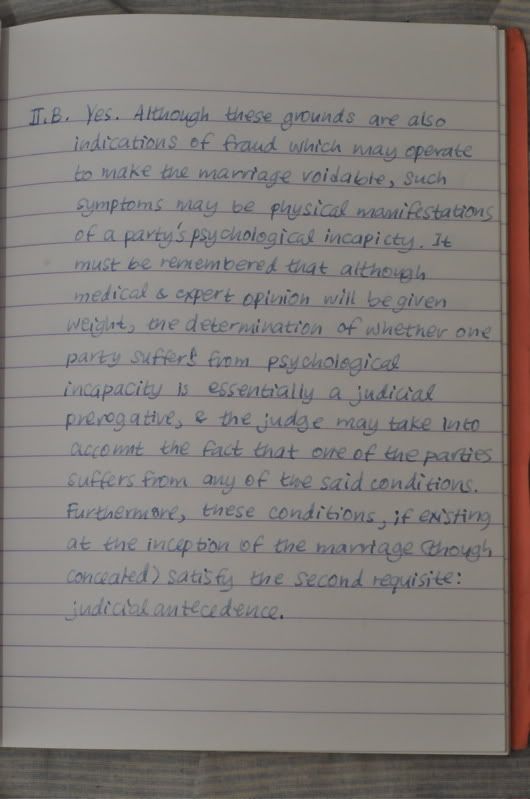 II.B. Yes. Although these grounds are also
indications of fraud which may operate
to make the marriage voidable, such
symptoms may be physical manifestations
of a party's psychological incapicty. It
must be remembered that although
medical & expert opinion will be given
weight, the determination of whether one
party suffers from psychological
incapacity is essentially a judicial
prerogative, & the judge may take into
account the fact that one of the parties
suffers from any of the said conditions.
Furthermore, these conditions, if existing
at the inception of the marriage (though
concealed) satisfy the second requisite:
judicial antecedence.